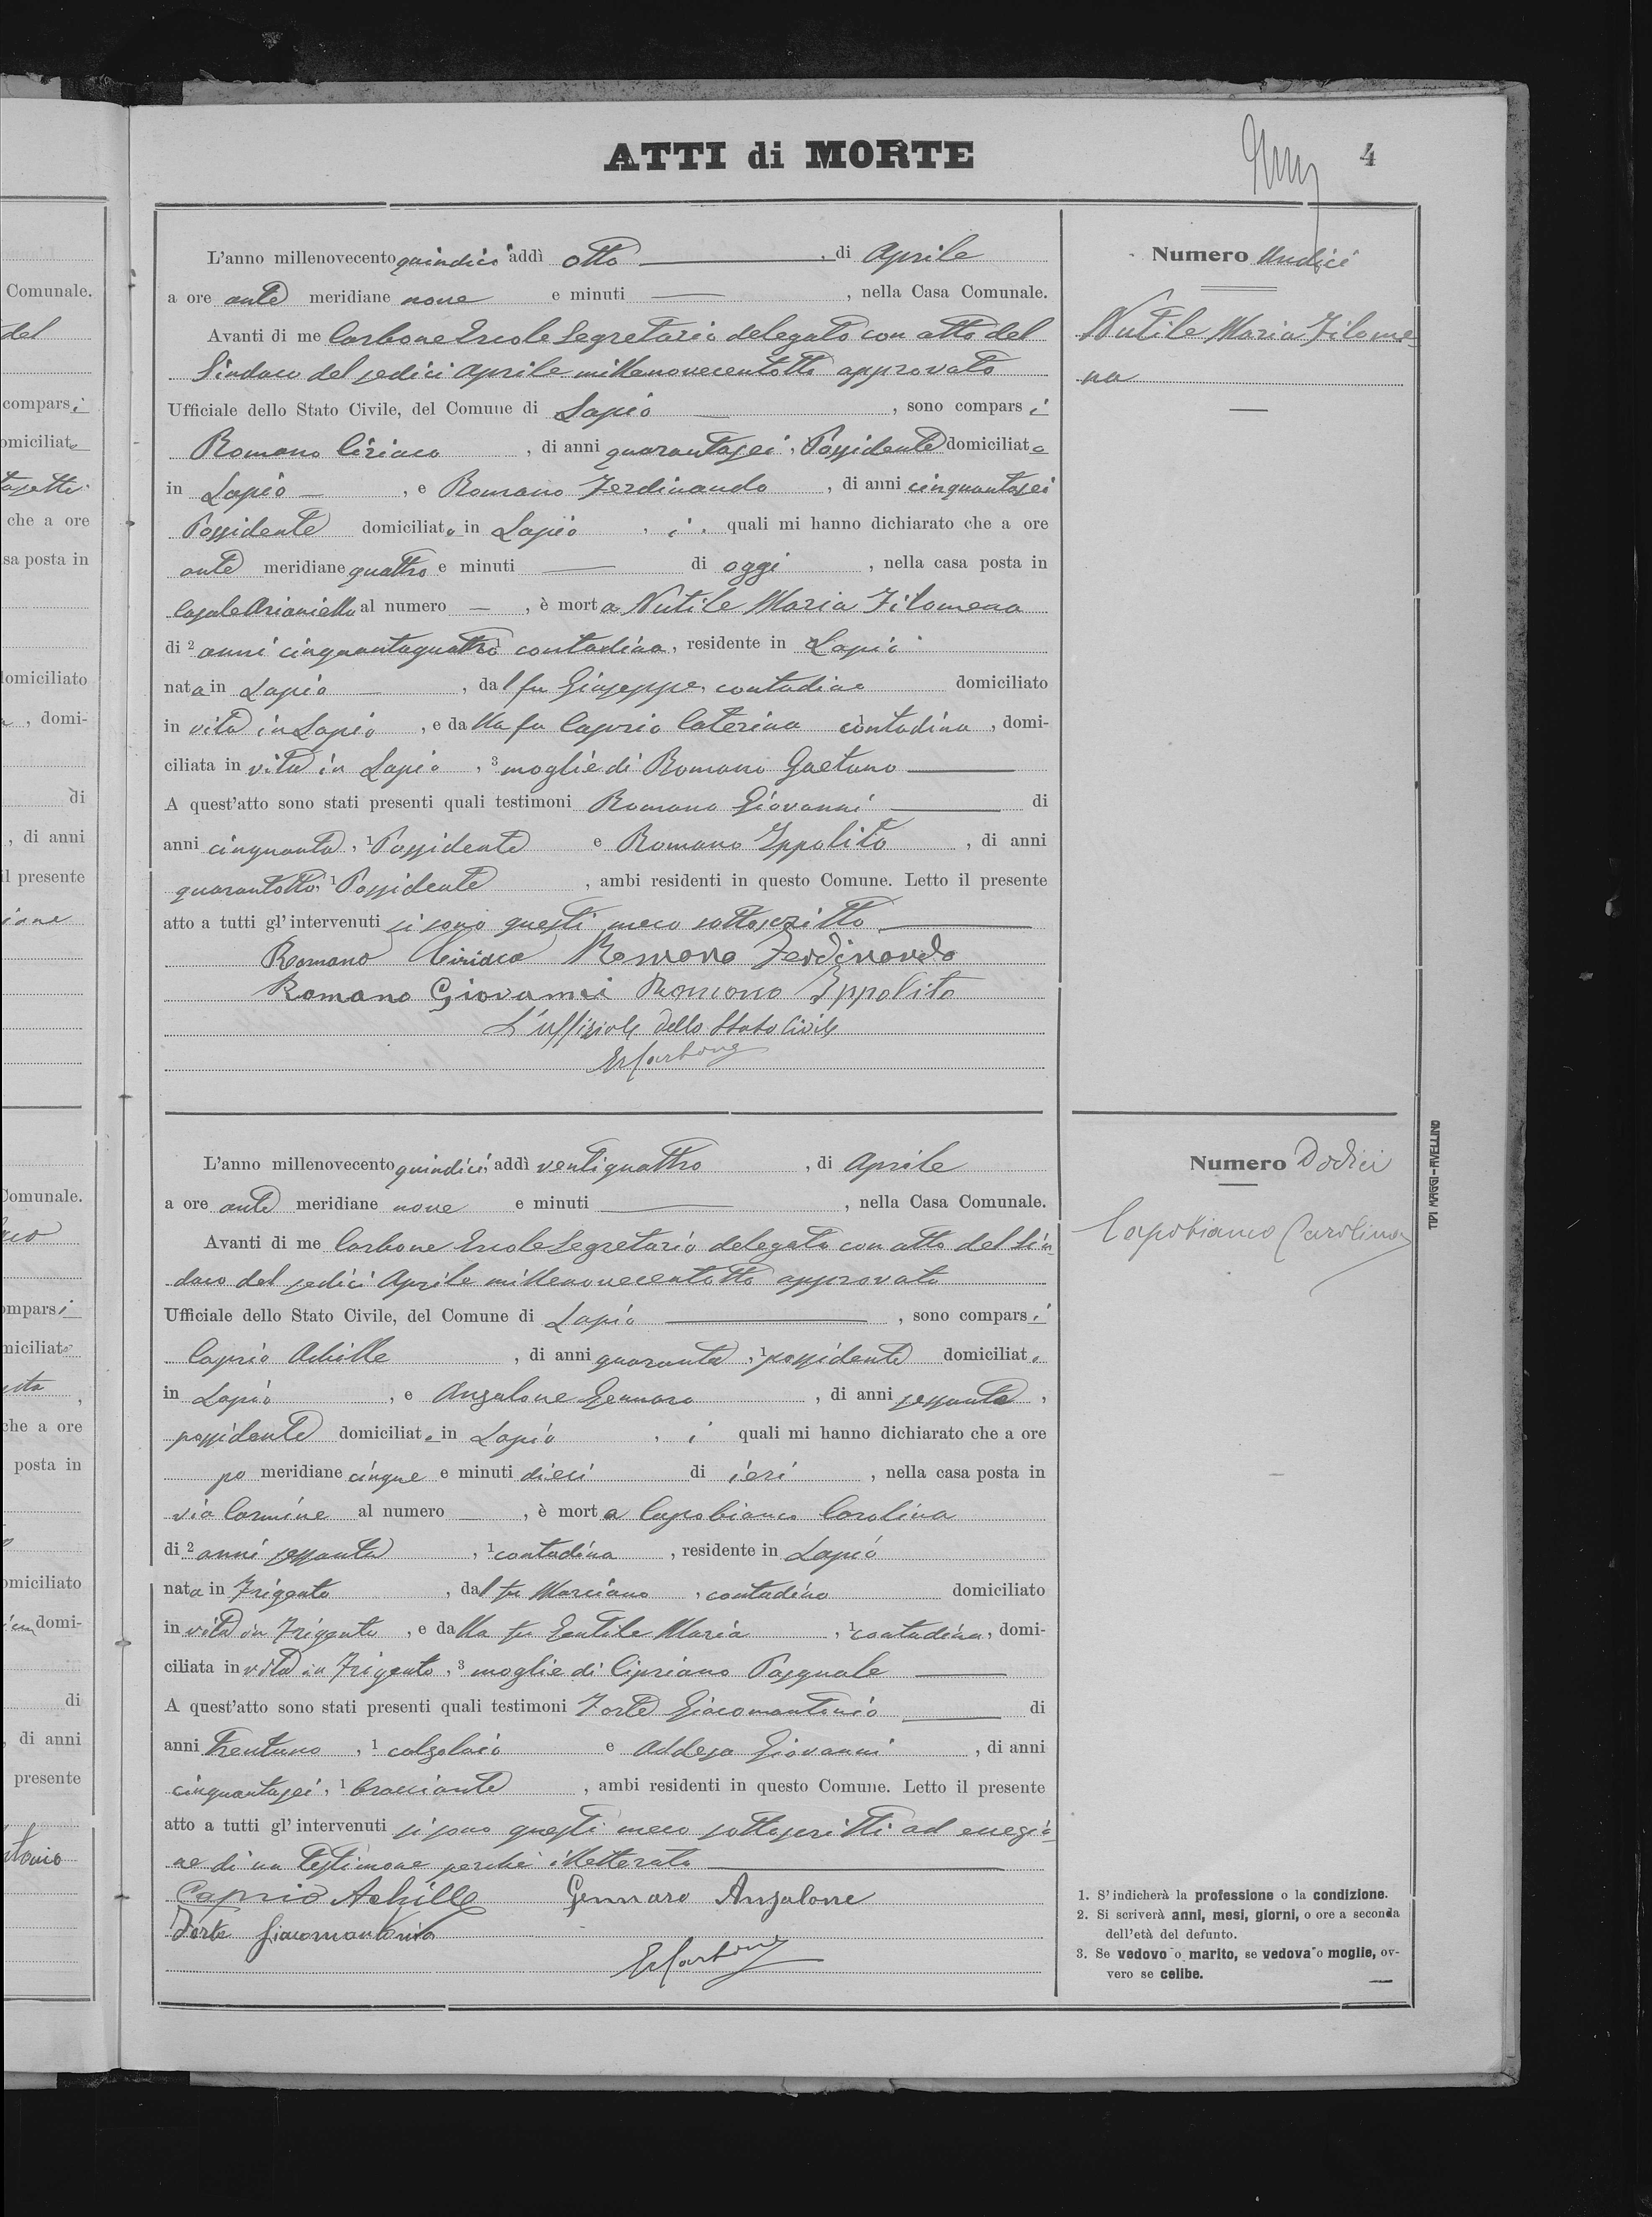 ATTI di MORTE
4
L'anno millenovecento quindici addì otto, di Aprile
a ore ante meridiane nove e minuti —, nella Casa Comunale.
Avanti di me Carbone Ercole Segretario delegato con atto del
Sindaco del sedici Aprile millenovecentotto approvato
Ufficiale dello Stato Civile, del Comune di Lapio —, sono comparsi
Romano Ciriaco, di anni quarantasei, Possidente domiciliato
in Lapio —, e Romano Ferdinando, di anni cinquantasei
Possidente domiciliato in Lapio, i quali mi hanno dichiarato che a ore
ante meridiane quattro e minuti — di oggi, nella casa posta in
Casale Arianiello al numero —, è morta Nutile Maria Filomena
di 2 anni cinquantaquattro contadina, residente in Lapio
nata in Lapio —, dal fu Giuseppe, contadino domiciliato
in vita in Lapio, e dalla fu Caprio Caterina contadina, domi-
ciliata in vita in Lapio, 3 moglie di Romano Gaetano —
A quest'atto sono stati presenti quali testimoni Romano Giovanni — di
anni cinquanta, 1 Possidente e Romano Ippolito, di anni
quarantotto, 1 Possidente, ambi residenti in questo Comune. Letto il presente
atto a tutti gl'intervenuti si sono questi meco sottoscritto —
Romano Ciriaco Romano Ferdinando
Romano Giovanni Romano Ippolito
L'uffiziale dello Stato Civile
ErCarbone
Numero Undici
Nutile Maria Filome-
na
L'anno millenovecento quindici addì ventiquattro, di Aprile
a ore ante meridiane nove e minuti —, nella Casa Comunale.
Avanti di me Carbone Ercole Segretario delegato con atto del Sin-
daco del sedici Aprile millenovecentotto approvato
Ufficiale dello Stato Civile, del Comune di Lapio —, sono comparsi
Caprio Achille, di anni quaranta, 1 possidente domiciliato
in Lapio, e Anzalone Gennaro, di anni sessanta,
possidente domiciliato in Lapio, i quali mi hanno dichiarato che a ore
po meridiane cinque e minuti dieci di ieri, nella casa posta in
via Carmine al numero —, è morta Capobianco Carolina
di 2 anni sessanta, 1 contadina, residente in Lapio
nata in Frigento, dal fu Marciano, contadino domiciliato
in vita in Frigento, e dalla fu Gentile Maria, 1 contadina, domi-
ciliata in vita in Frigento, 3 moglie di Cipriano Pasquale —
A quest'atto sono stati presenti quali testimoni Forte Giacomantonio — di
anni trentuno, 1 calzolaio e Addesa Giovanni, di anni
cinquantasei, 1 bracciante, ambi residenti in questo Comune. Letto il presente
atto a tutti gl'intervenuti si sono questi meco sottoscritti ad ecezio-
ne di un testimone perchè illetterato —
Caprio Achille Gennaro Anzalone
Forte Giacomantonio
ErCarbone
Numero Dodici
Capobianco Carolina
1. S'indicherà la professione o la condizione.
2. Si scriverà anni, mesi, giorni, o ore a seconda
dell'età del defunto.
3. Se vedovo o marito, se vedova o moglie, ov-
vero se celibe.
TIPI MAGGI-AVELLINO
Comunale.
del
comparsi
omiciliato
che a ore
sa posta in
domiciliato
, domi-
di
, di anni
il presente
Comunale.
omparsi
miciliato
che a ore
posta in
omiciliato
domi-
di
di anni
presente